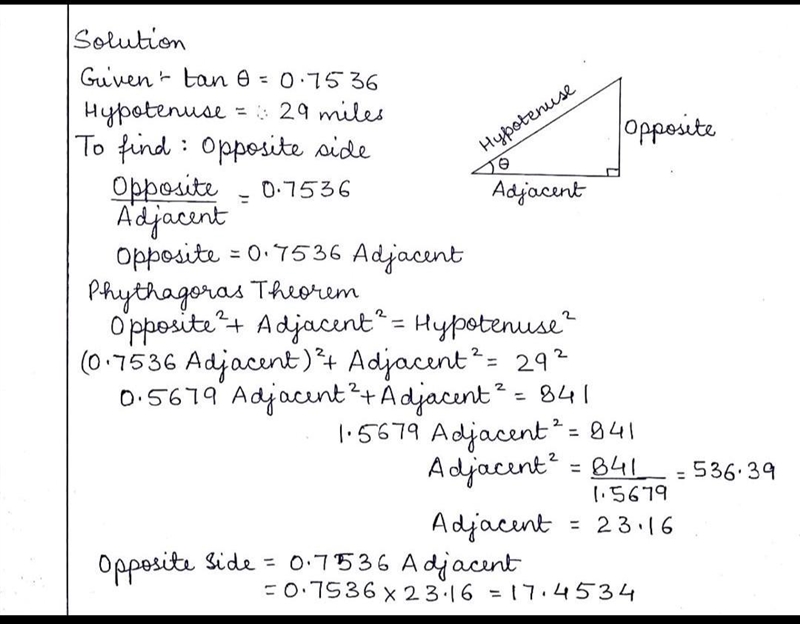 Solution
Given:- tan θ = 0.7536
Hypotenuse = 29 miles
To find : Opposite side
Opposite / Adjacent = 0.7536
Opposite = 0.7536 Adjacent
Phythagoras Theorem
Opposite² + Adjacent² = Hypotenuse²
(0.7536 Adjacent)² + Adjacent² = 29²
0.5679 Adjacent² + Adjacent² = 841
1.5679 Adjacent² = 841
Adjacent² = 841 / 1.5679 = 536.39
Adjacent = 23.16
Opposite side = 0.7536 Adjacent
= 0.7536 x 23.16 = 17.4534
Hypotenuse
Opposite
θ
Adjacent